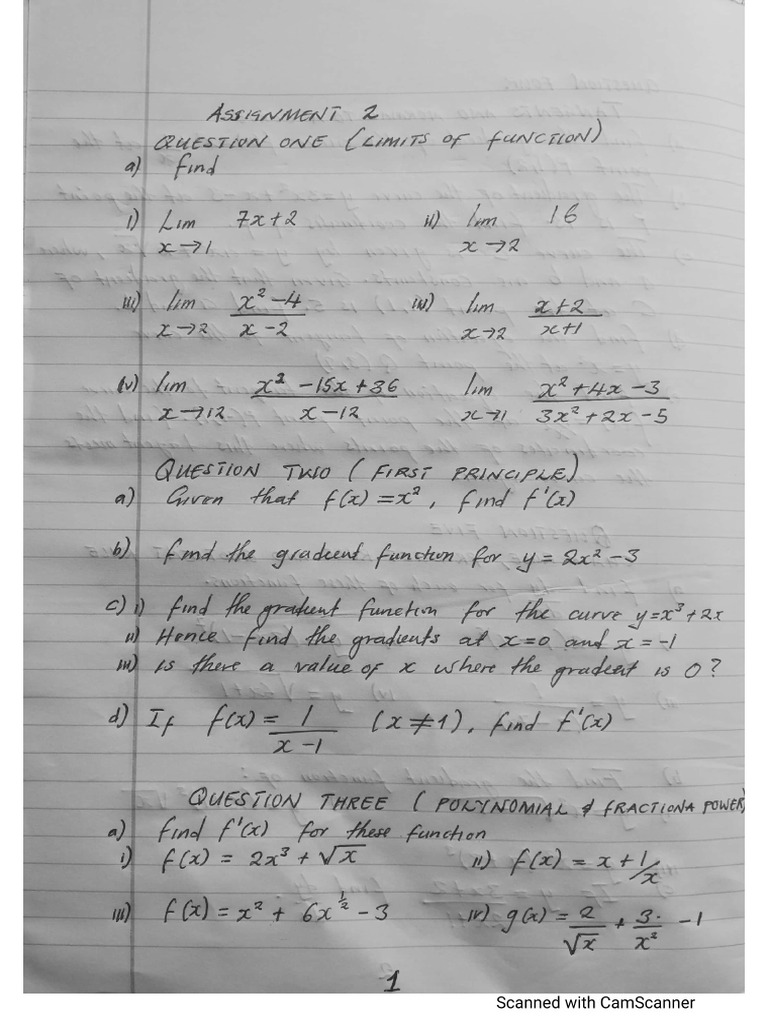 ASSIGNMENT 2
QUESTION ONE (LIMITS OF FUNCTION)
a) find
i) Lim x→1 7x+2 ii) lim x→2 16
iii) lim x→2 (x²-4)/(x-2) iv) lim x→2 (x+2)/(x+1)
(v) lim x→12 (x²-15x+36)/(x-12) lim x→1 (x²+4x-3)/(3x²+2x-5)
QUESTION TWO (FIRST PRINCIPLE)
a) Given that f(x)=x², find f'(x)
b) find the gradient function for y=2x²-3
c) i) find the gradient function for the curve y=x³+2x
ii) Hence find the gradients at x=0 and x=-1
iii) is there a value of x where the gradient is 0?
d) If f(x)= 1/(x-1) (x≠1), find f'(x)
QUESTION THREE (POLYNOMIAL & FRACTIONA POWER)
a) find f'(x) for these function
i) f(x) = 2x³ + √x ii) f(x) = x + 1/x
iii) f(x) = x² + 6x^½ - 3 iv) g(x) = 2/√x + 3/x² - 1
1
Scanned with CamScanner